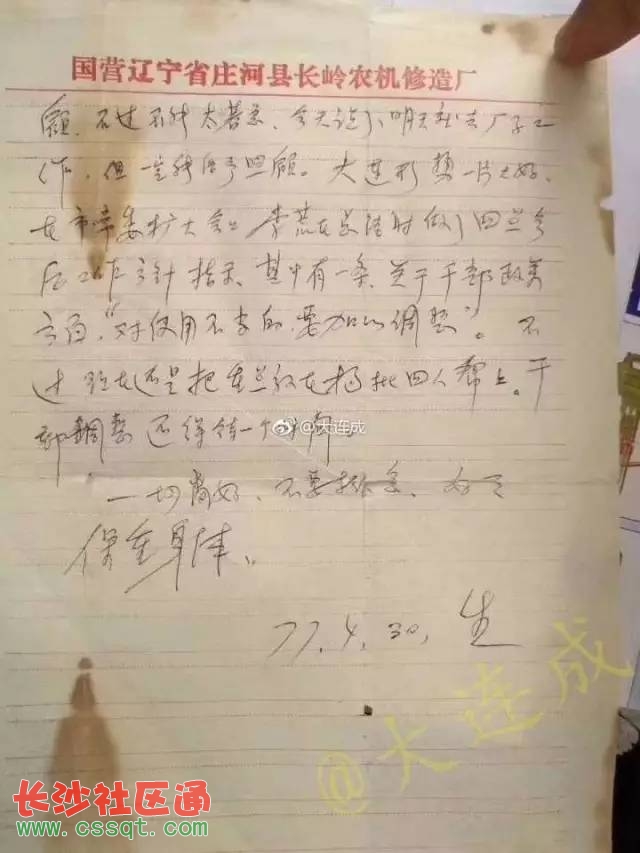 国营辽宁省庄河县长岭农机修造厂
顾，不过不能太着急，今天谈了，明天就去厂子工
作，但是能给予照顾。大连形势一片大好，
在市常委扩大会上 李荒在总结时做了四点今
后工作方针指示，其中有一条，关于干部政策
方面，“对使用不当的，要加以调整”。不
过 现在还是把重点放在揭批四人帮上。干
部调整 还得待一个时期。
@大连成
一切尚好，不要挂念，
保重身体，
77.4.30，生
@大连成
长沙社区通
www.cssqt.com